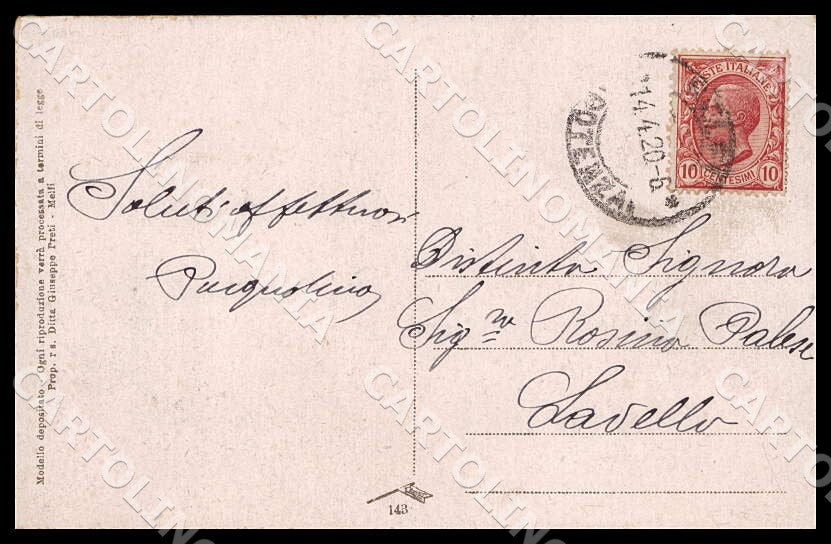 Modello depositato - Ogni riproduzione verrà processata a termini di legge
Prop. rs. Ditta Giuseppe Preti - Melfi
Saluti affettuosi
Pasqualino
POSTE ITALIANE
10 CENTESIMI 10
14.4.20-6
(POTENZA)
Distinta Signora
Sig ra Rosina Palese
Lavello
143
CARTOLINOMANIA